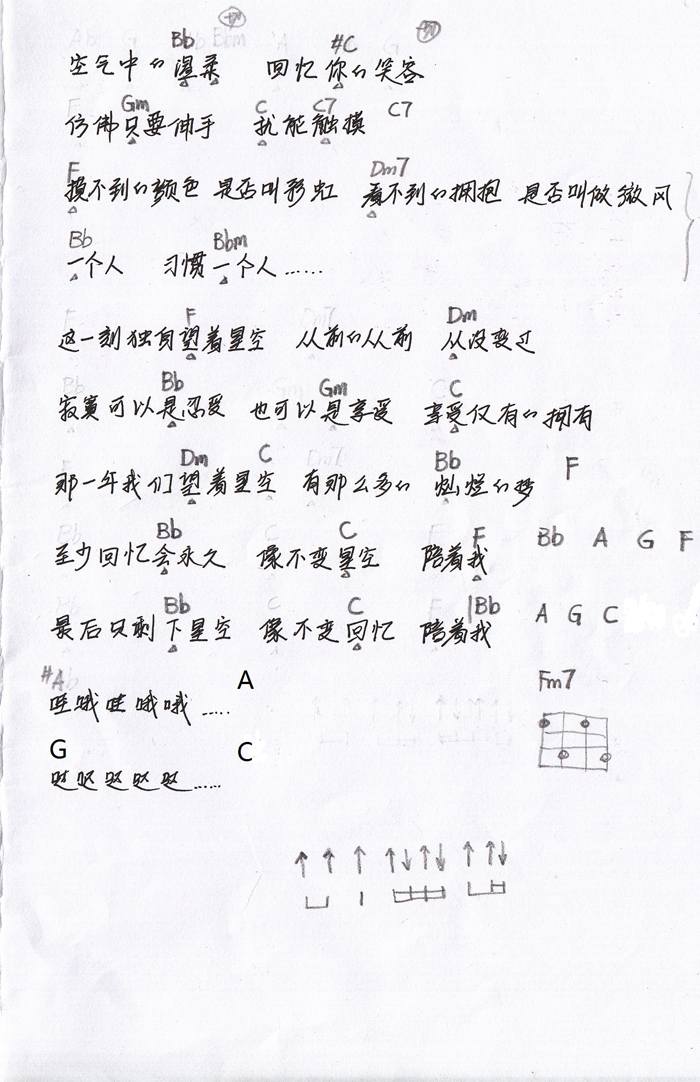 切
Bb #C 切
空气中的温柔 回忆你的笑容
Gm C C7 C7
仿佛只要伸手 就能触摸
F Dm7
摸不到的颜色 是否叫彩虹 看不到的拥抱 是否叫做微风
Bb Bbm
一个人 习惯一个人……
F Dm
这一刻独自望着星空 从前的从前 从没变过
Bb Gm C
寂寞可以是忍受 也可以是享受 享受仅有的拥有
Dm C Bb F
那一年我们望着星空 有那么多的 灿烂的梦
Bb C F Bb A G F
至少回忆会永久 像不变星空 陪着我
Bb C |Bb A G C
最后只剩下星空 像不变回忆 陪着我
#A A
哇哦哇哦哦…… Fm7
G C